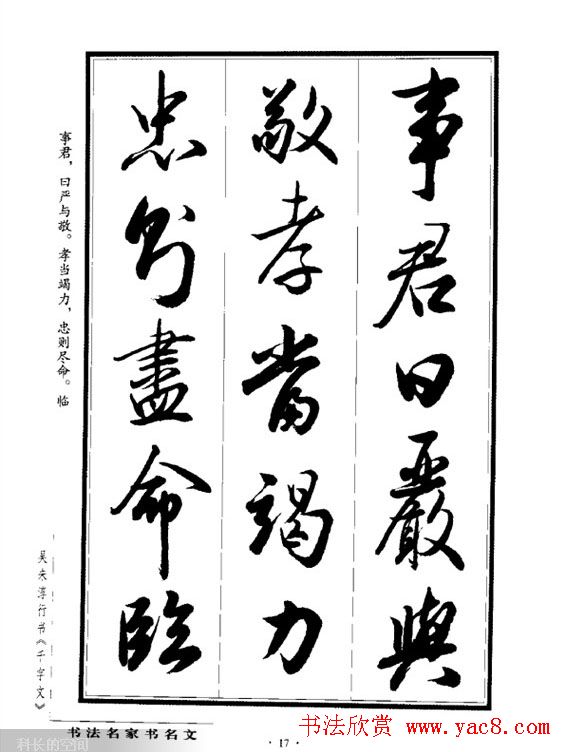 事君曰嚴與
敬孝當竭力
忠則盡命臨
事君，曰严与敬。孝当竭力，忠则尽命。临
吴未淳行书《千字文》
书法名家书名文
·17·
科长的空间
书法欣赏 www.yac8.com